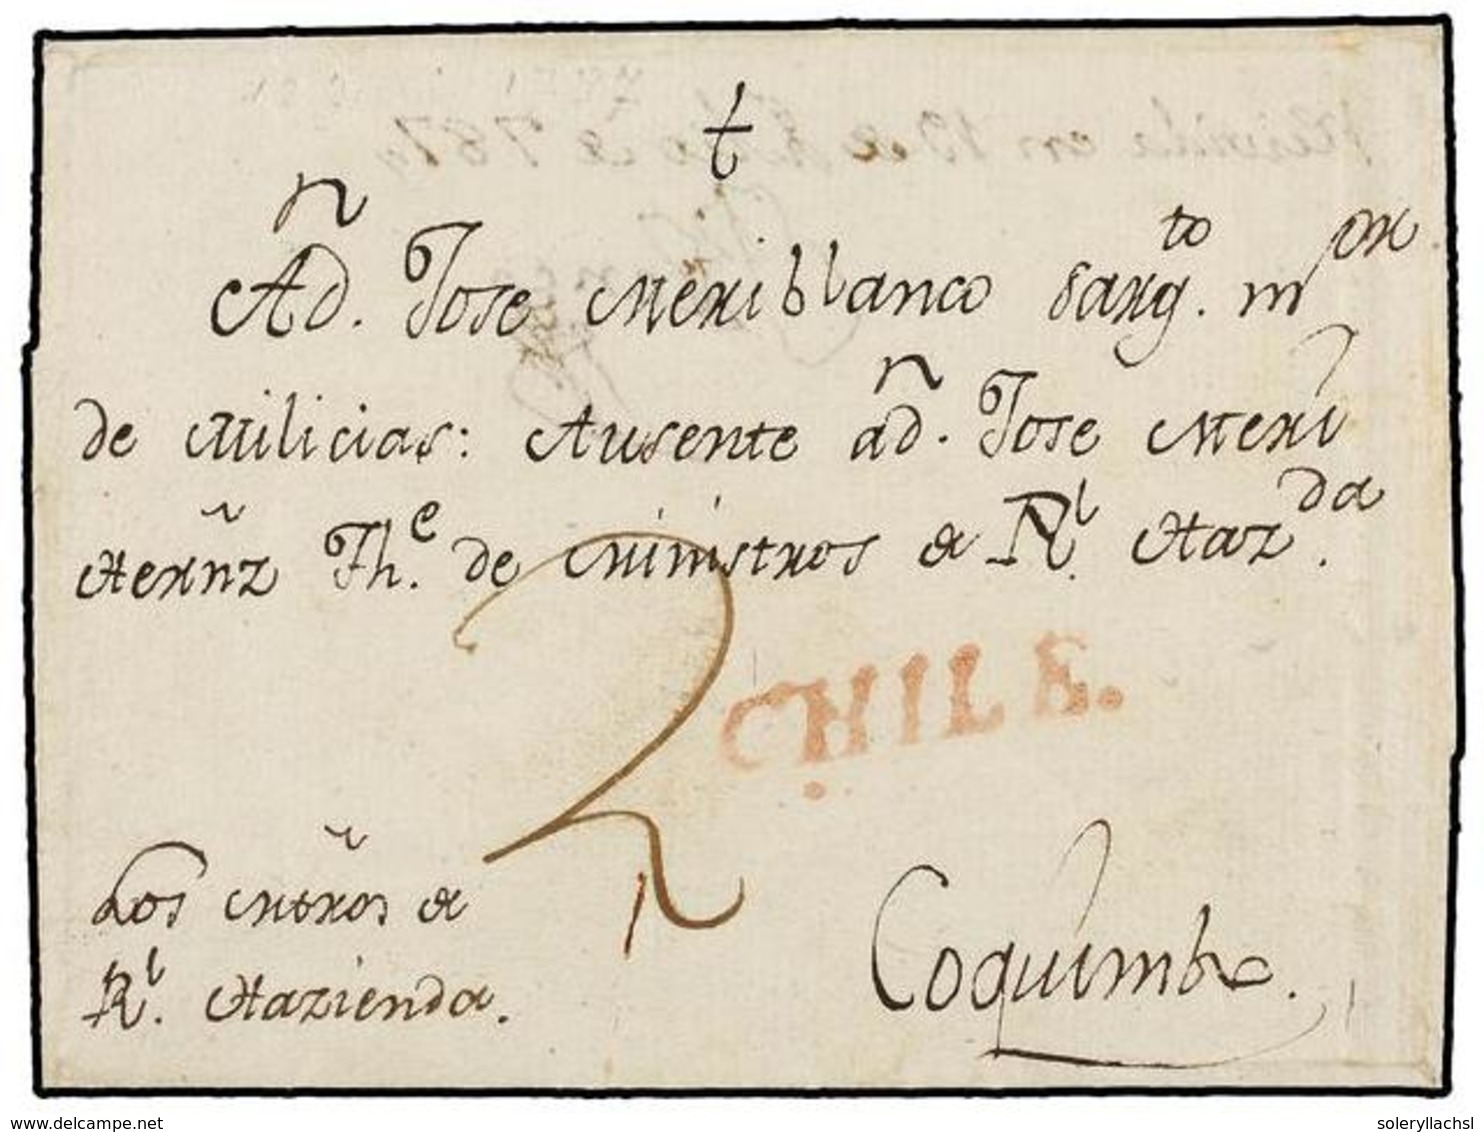 t
A Dn. Jose Meriblanco Sargto. mor.
de Milicias: Ausente a Dn. Jose Meri
Herñz The. de Ministros de Rl. Hazda.
2
CHILE.
Los Mtros de
Rl. Hazienda.
Coquimbo.
www.delcampe.net
soleryllachsl